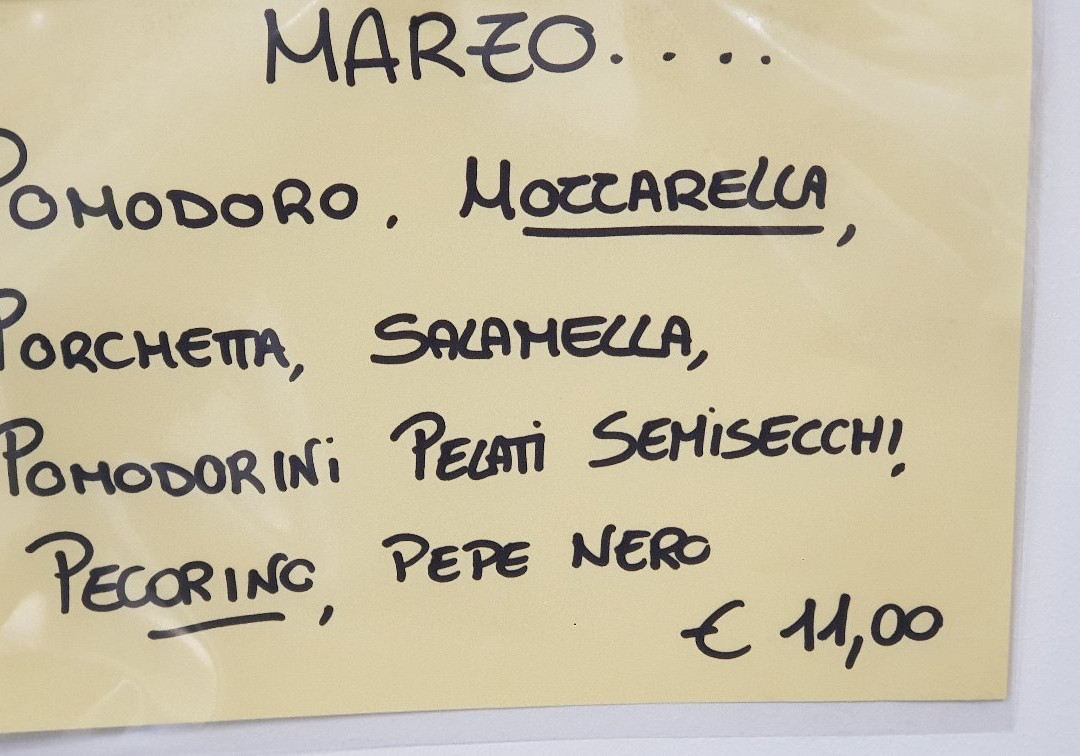 MARZO....
POMODORO, MOZZARELLA,
PORCHETTA, SALAMELLA,
POMODORINI PELATI SEMISECCHI,
PECORINO, PEPE NERO
€ 11,00